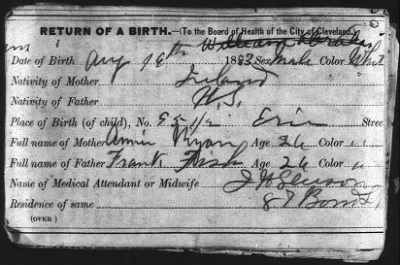 RETURN OF A BIRTH.—(To the Board of Health of the City of Cleveland.)
Date of Birth Aug 1883 Sex Male Color Whit
Nativity of Mother Ireland
Nativity of Father U.S.
Place of Birth (of child), No. 95 1/2 Erin Stree
Full name of Mother Annie Ryan Age 26 Color "
Full name of Father Frank Age 26 Color "
Name of Medical Attendant or Midwife
Residence of same 87 Bond
(OVER)